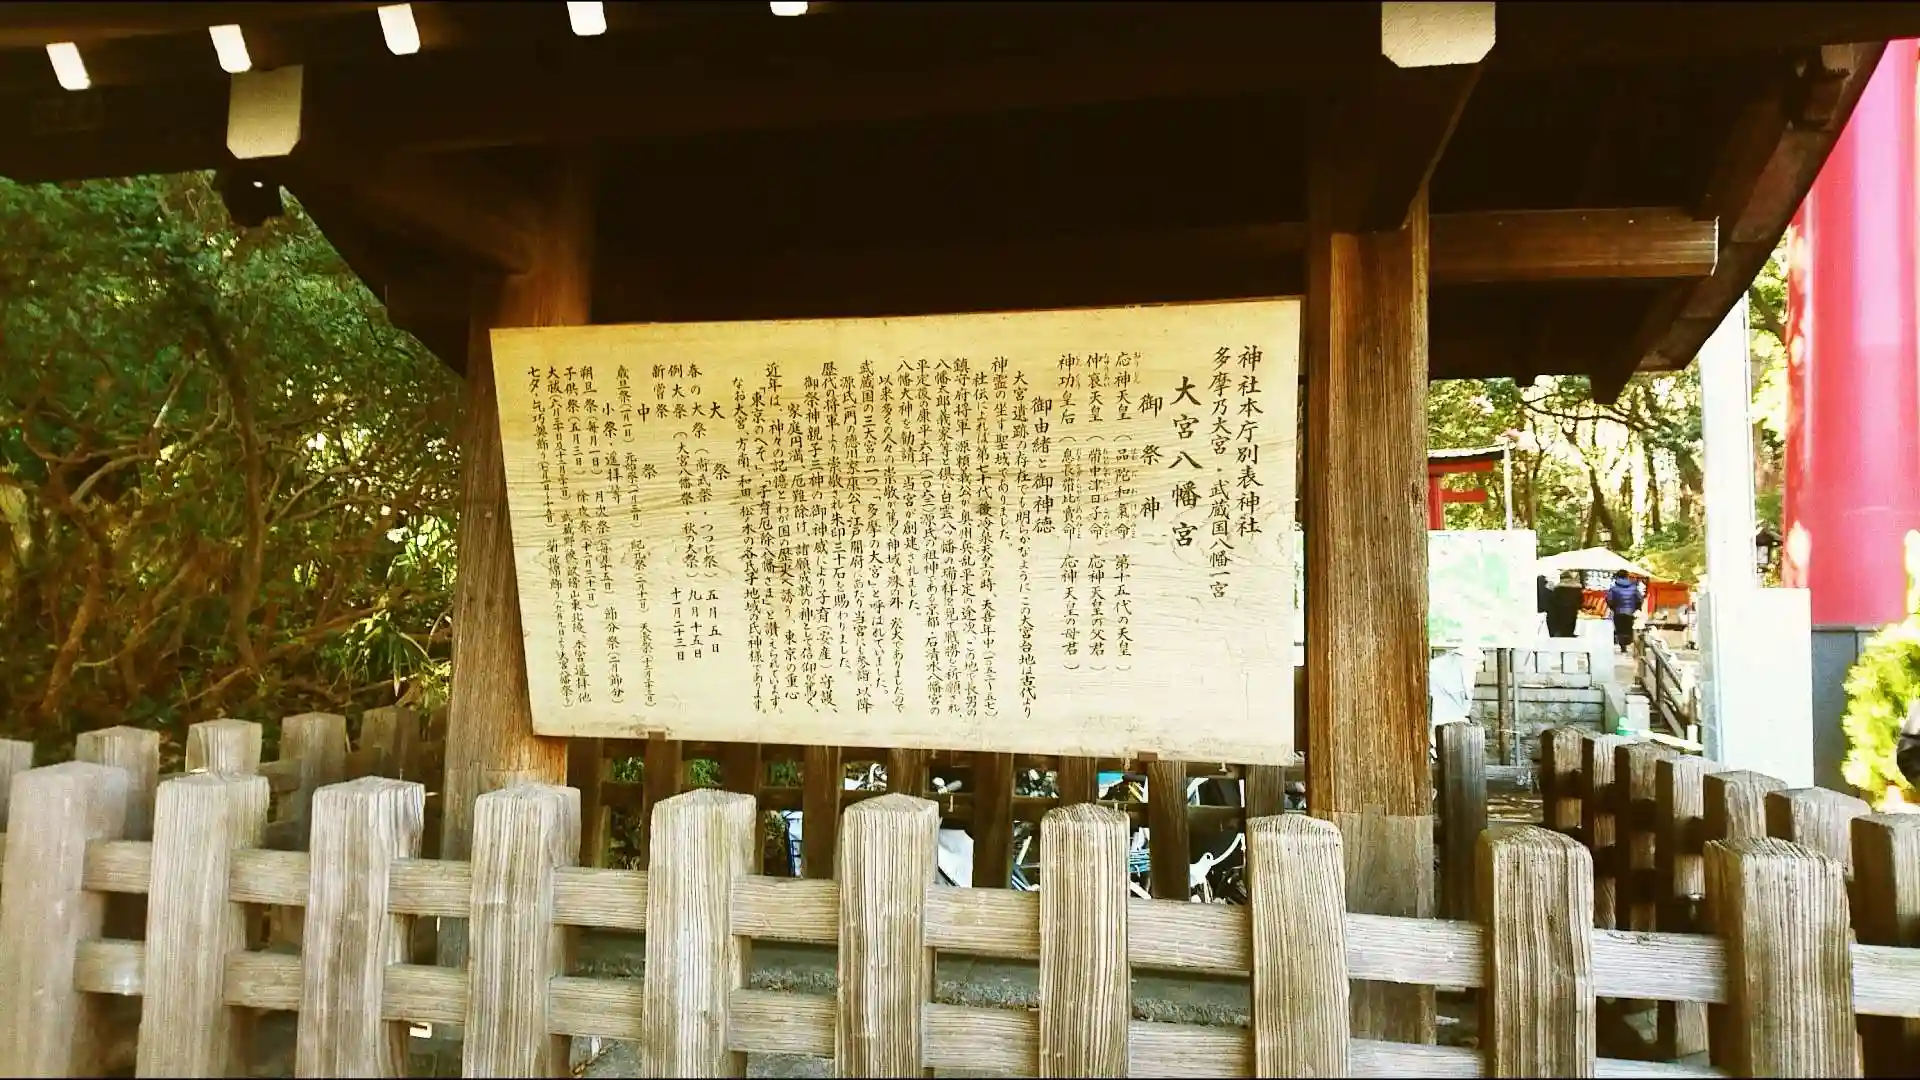 神社本庁別表神社
多摩乃大宮・武蔵国八幡一宮
大宮八幡宮
御祭神
応神天皇（品陀和氣命　第十五代の天皇）
仲哀天皇（帯中津日子命　応神天皇の父君）
神功皇后（息長帯比賣命　応神天皇の母君）
御由緒と御神徳
大宮遺跡の存在でも明らかなようにこの大宮台地は古代より
神霊の坐す聖域でありました。
社伝によれば第七十代後冷泉天皇の時、天喜年中（一〇五三〜五七）
鎮守府将軍 源頼義公が奥州兵乱平定の途次、この地で長男の
八幡太郎義家等と倶に白雲八幡の瑞祥を見て戦勝を祈願され、
平定後の康平六年（一〇六三）源氏の祖神である京都・石清水八幡宮の
八幡大神を勧請、当宮が創建されました。
以来多くの人々の崇敬が篤く神域も殊の外 広大でありましたので
武蔵国の三大宮の一つ「多摩の大宮」と呼ばれていました。
源氏一門の徳川家康公も江戸開府にあたり当宮にも参詣、以降
歴代の将軍より崇敬され朱印三十石を賜わりました。
御祭神 親子三神の御神威により子育（安産）守護、
家庭円満、厄難除け、諸願成就の神として信仰が篤く、
近年は、神々の記憶とわが国の歴史へ誘う、東京の重心
「東京のへそ」「子育厄除八幡さま」と讃えられています。
なお大宮・方南・和田・松木の各氏子地域の氏神様であります。
大祭
春の大祭（尚武祭・つつじ祭）五月五日
例大祭（大宮八幡祭・秋の大祭）九月十五日
新嘗祭　十一月二十三日
中祭
歳旦祭（一月一日）元始祭（一月三日）紀元祭（二月十一日）天長祭（十二月二十三日）
小祭・遥拝等
朔旦祭（毎月一日）月次祭（毎月十五日）節分祭（二月節分）
子供祭（五月三日）除夜祭（十二月三十一日）
大祓（六月三十日及十二月三十一日）
七夕・乞巧奠飾り